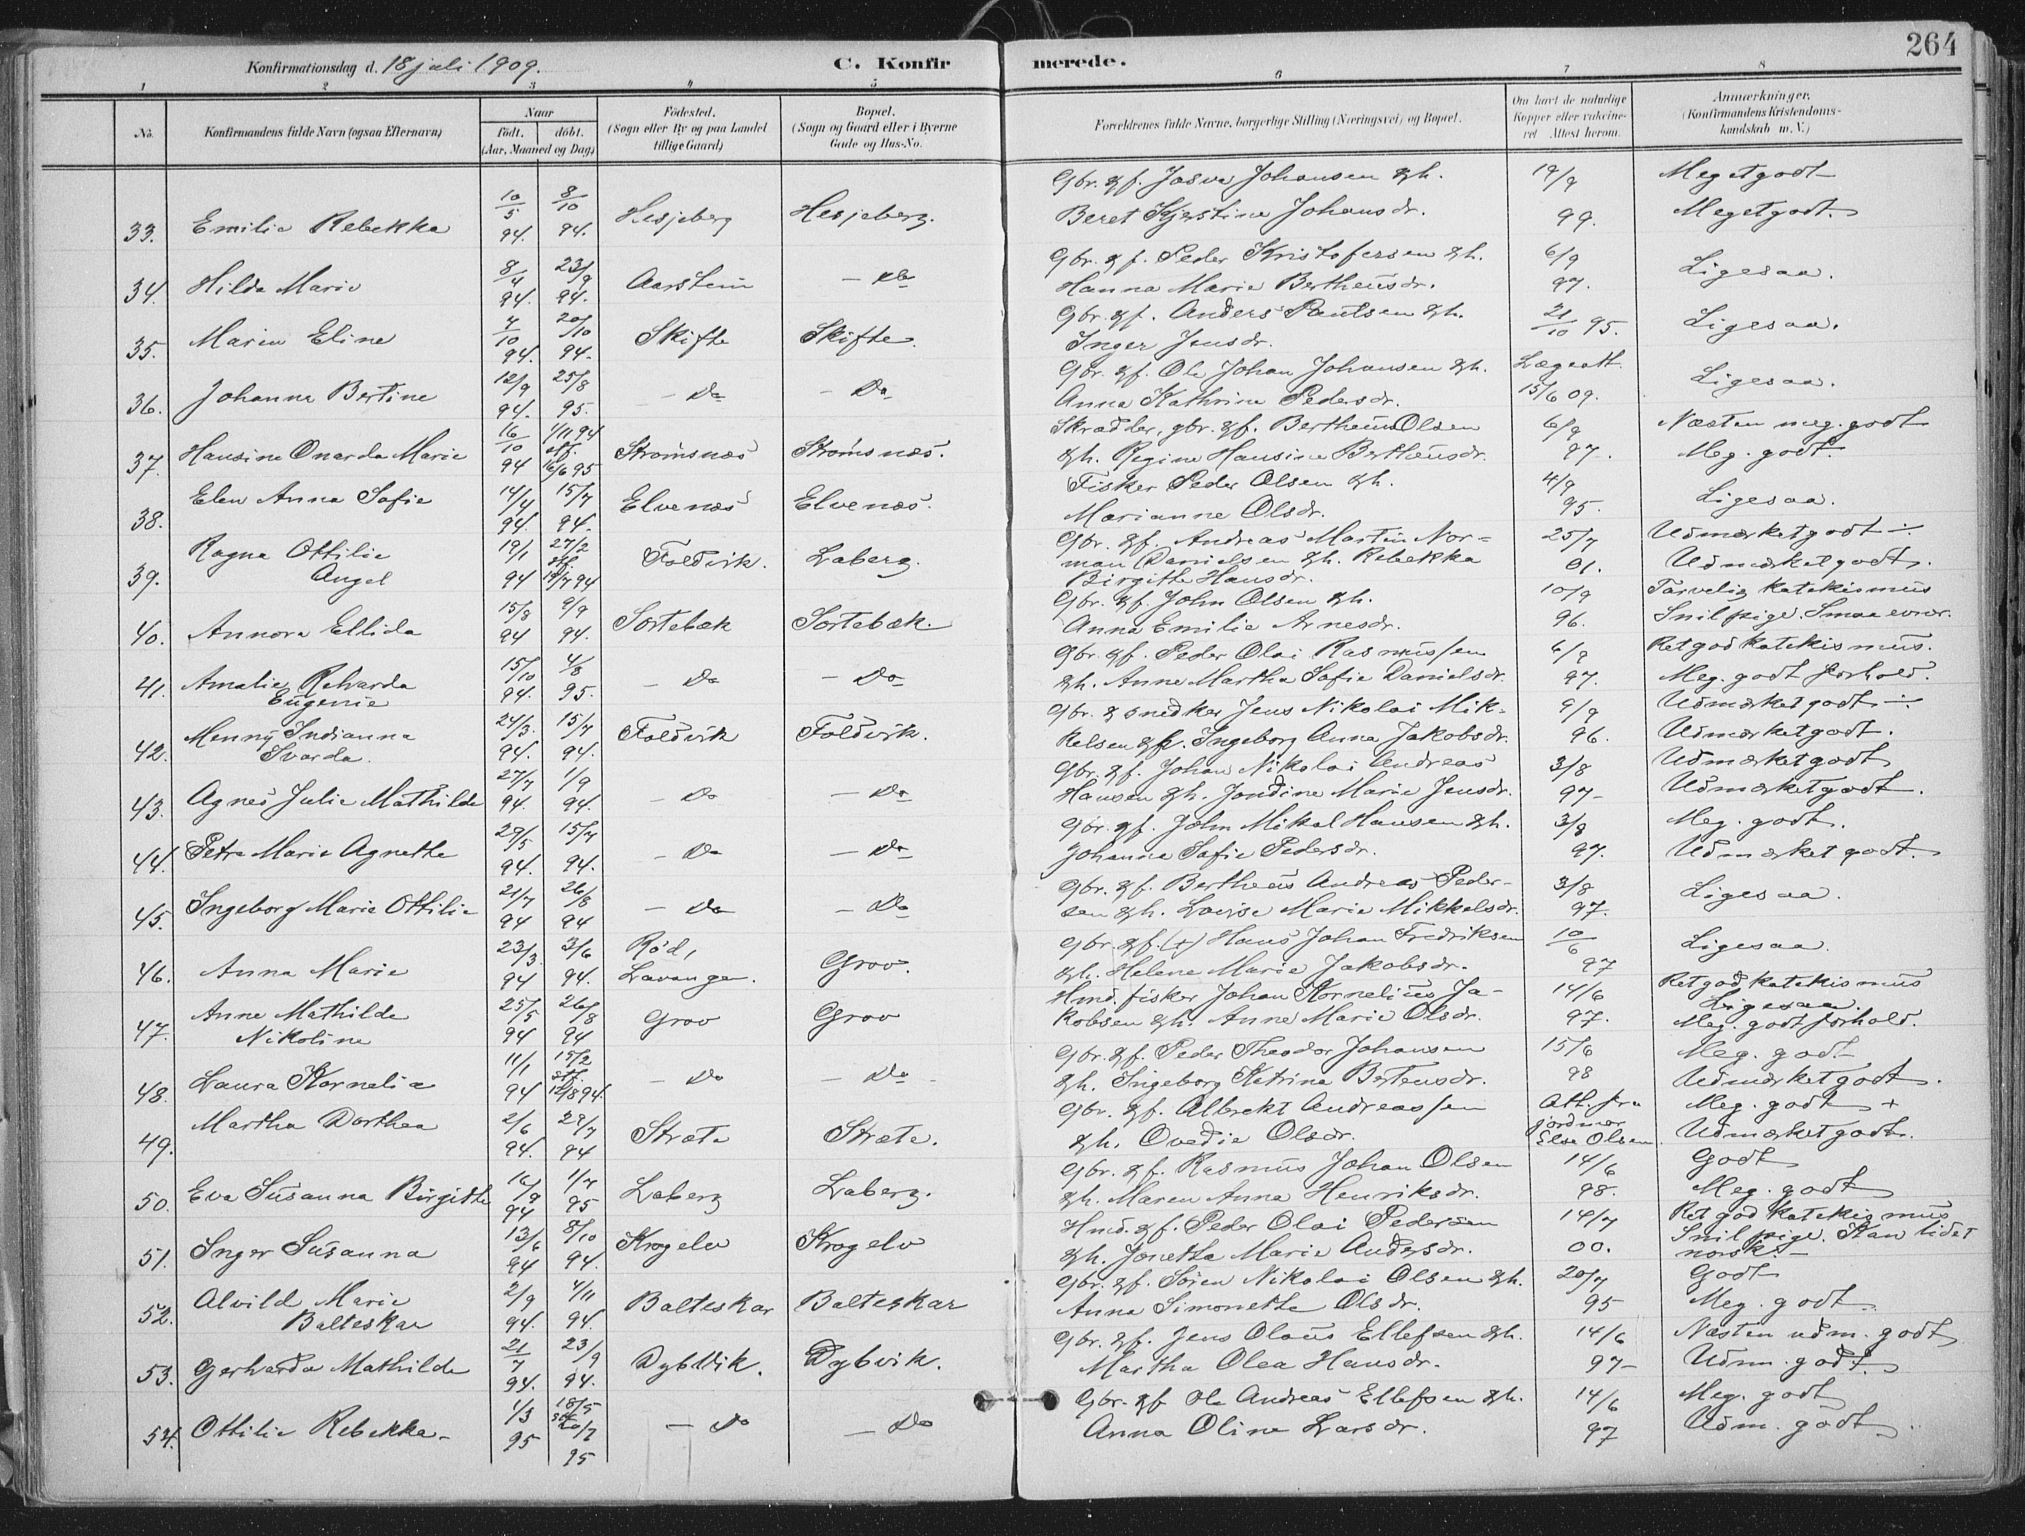 264
Konfirmationsdag d. 18 juli 1909.
C. Konfirmerede.
1 2 3 4 5 6 7 8
No.
Konfirmandens fulde Navn (ogsaa Efternavn)
Naar
født. døbt.
(Aar, Maaned og Dag)
Fødested.
(Sogn eller By og paa Landet
tillige Gaard)
Bopæl.
(Sogn og Gaard eller i Byerne
Gade og Hus-No.
Forældrenes fulde Navne, borgerlige Stilling (Næringsvei) og Bopæl.
Om havt de naturlige
Kopper eller vakcine-
ret. Attest herom.
Anmærkninger.
(Konfirmandens Kristendoms-
kundskab m. V.)
33. Emilie Rebekka 10/5 94. 8/10 94. Hesjeberg Hesjeberg. Gbr. gf. Johansen & h. 19/9 99. Megetgodt
Beret Kjerstine Johansdr. Megetgodt.
34. Hilda Marie 8/4 94. 23/9 94. Aarstein — Do Gbr. & f. Peder Kristofersen & h. 6/9 97. Ligesaa.
Hanna Marie Bertheusdr.
35. Maren Eline 4/10 94. 20/10 94. Skifte Skifte. Gbr. & f. Anders Paulsen & h. 21/10 95. Ligesaa.
Inger Jensdr.
36. Johanna Bertine 12/9 94. 25/8 95. — Do — Do Gbr. & f. Ole Johan Johansen & h. Lægeatt. 15/6 09. Ligesaa.
Anna Kathrine Pedersdr.
37. Hansine Onarda Marie 16/10 94 1/11 94 stf. 16/6 95 Strømsnæs Strømsnæs. Skrædder, gbr. & f. Bertheus Olsen 6/9 97. Næsten meg. godt
& h. Regine Hansine Bertheusdr. Meg. godt.
38. Elen Anna Sofie 14/4 94. 15/7 94. Elvenæs Elvenæs. Fisker Peder Olsen & h. 4/9 95. Ligesaa.
Marianne Olsdr.
39. Ragna Ottilie Angel 19/1 94 27/2 stf. 94 Foldvik. Laberg. Gbr. & f. Andreas Martin Nor- 25/7 01. Udmærketgodt
man Danielsen & h. Rebekka Udmærketgodt.
Birgithe Hansdr.
40. Annora Ellida 15/8 94 9/9 94. Sortebæk Sortebæk. Gbr. & f. John Olsen & h. 10/9 96. Tarvelig katekismus
Anna Emilie Arnesdr. Snil pige. Smaa evner.
41. Amalie Relvarda Eugenie 15/10 94. 4/8 95. — Do — Do Gbr. & f. Peder Olai Rasmussen 6/9 97. Retgod katekismus.
& h. Anne Martha Sofie Danielsdr. Meg. godt forhold.
42. Menny Indianna Svarda. 24/3 94. 15/7 94. Foldvik Foldvik. Gbr. & snedker Jens Nikolai Mik- 9/9 96. Udmærketgodt
kelsen & h. Ingeborg Anna Jakobsdr. Udmærketgodt.
43. Agnes Julie Mathilde 27/7 94. 1/9 94. — Do — Do Gbr. & f. Johan Nikolai Andreas 3/8 97 Udmærketgodt
Hansen & h. Jondine Marie Jensdr. Udmærketgodt.
44. Petra Marie Agnethe 29/5 94. 15/7 94. — Do — Do Gbr. & f. John Mikal Hansen & h. 3/8 97. Meg. godt.
Johanna Sofie Pedersdr. Udmærket godt.
45. Ingeborg Marie Ottilie 21/7 94 26/8 94 — Do — Do Gbr. & f. Bertheus Andreas Peder- 3/8 97. Ligesaa.
sen & h. Lovise Marie Mikkelsdr.
46. Anna Marie 23/3 94 3/6 94. Rød, Lavangen. Grov. Gbr. & f. (+) Hans Johan Fredriksen 10/6 97 Ligesaa.
& h. Helene Marie Jakobsdr.
47. Anne Mathilde Nikoline 25/5 94 26/8 94 Grov Grov Hmd. fisker Johan Kornelius Ja- 14/6 97. Retgod katekismus
Ligesaa.
kobsen & h. Anne Marie Olsdr. Meg. godt forhold.
48. Laura Kornelia 11/1 94 15/2 stf. 12/8 94. — Do — Do Gbr. & f. Peder Theodor Johansen 15/6 98 Meg. godt
& h. Ingeborg Katrine Bertensdr. Udmærketgodt.
49. Martha Dorthea 2/6 94. 29/7 94 Stræte Stræte. Gbr. & f. Albrekt Andreassen Att. fra jordmor Olsen Meg. godt +
& h. Ovedie Olsdr. Udmærketgodt.
50. Eva Susanna Birgitte 16/9 94 1/7 95 Laberg Laberg. Gbr. & f. Rasmus Johan Olsen 14/6 98. Godt
& h. Maren Anna Henriksdr. Meg. godt
51. Inger Susanna 13/6 94 8/10 94. Krogelv Krogelv Hmd. & f. Peder Olai Pedersen 14/7 00. Ret god katekismus
& h. Jonetta Marie Andersdr. Snil pige. Kan lidet
norsk.
52. Alvild Marie Balteskar 2/9 94. 4/11 94. Balteskar Balteskar Gbr. & f. Søren Nikolai Olsen & h. 20/7 95 Godt
Anna Simonette Olsdr. Meg. godt.
53. Gerharda Mathilde 21/7 94. 23/9 94. Dybvik. Dybvik. Gbr. & f. Jens Olaus Ellefsen & h. 14/6 97 Næsten udm. godt
Martha Olea Hansdr. Udm. godt.
54. Ottilie Rebekka 1/3 95 18/5 stf. 20/7 95 — Do — Do Gbr. & f. Ole Andreas Ellefsen & h. 14/6 97 Meg. godt
Anna Oline Larsdr. Udm. godt.